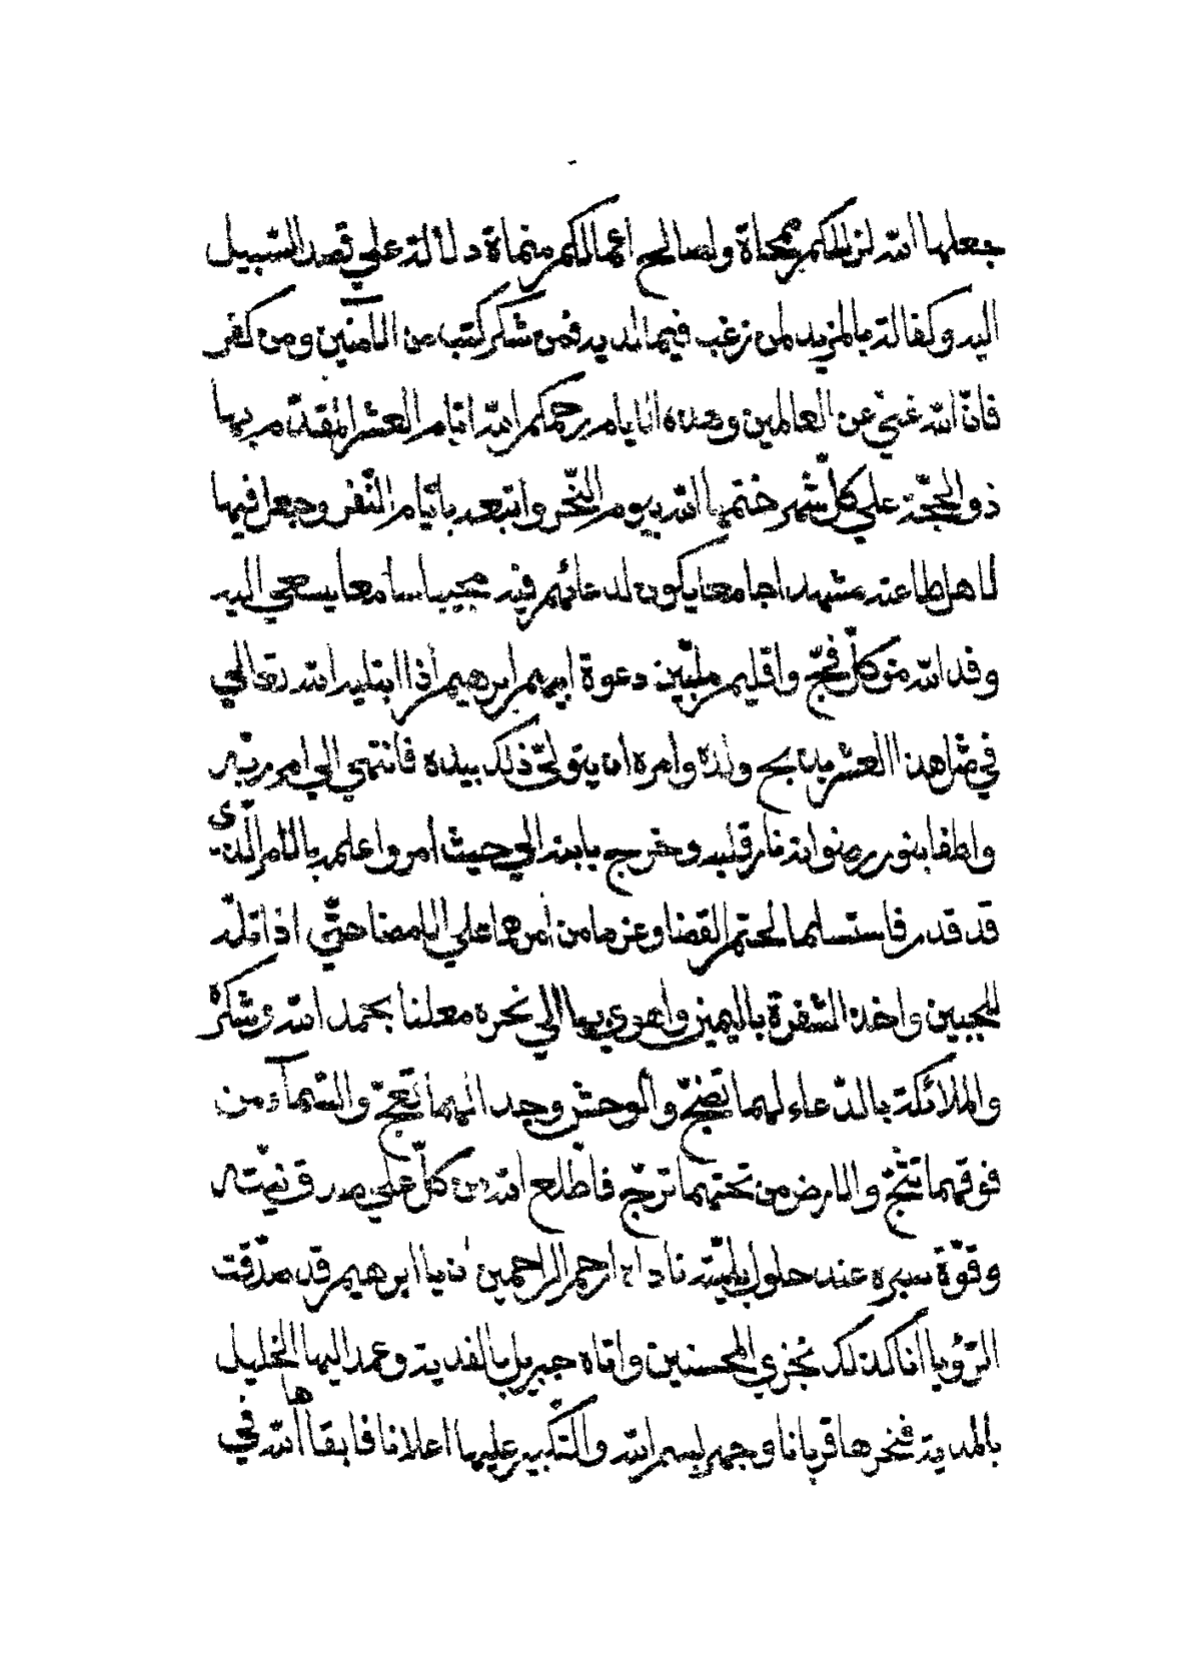 جعلها الله لزللكم ممحاة ولصالح اعمالكم منماة دلالة علي قصد السبيل
اليه وكفالة بالمزيد لمن رغب فيما لديه فمن شكر كتب من الآمنين ومن كفر
فانّ الله غني عن العالمين وهذه الايام يرحمكم الله ايام العشر المقدّم بها
ذو الحجّة علي كلّ شهر ختمها الله بيوم النّحر واتبعه بايّام النّفر وجعل فيها
لاهل طاعته مشهدا جامعا يكون لدعائهم فيه مجيبا سامعا يسعي اليه
وفد الله من كلّ فجّ واقليم ملبّين دعوة ابيهم ابرهيم اذا ابتليه الله تعالي
في مثل هذا العشر بذبح ولده وامره ان يتولّي ذلك بيده فانتهي الي امر ربّه
واطفا بنور رضوانه نار قلبه وخرج بابنه الي حيث امر واعلمه بالامر الّذي
قد قدر فاستسلما لحتم القضا وعزما من امرهما علي الامضا حتّي اذا تلّه
للجبين واخذ الشفرة باليمين واهوي بها الي نحره معلنا بحمد الله وشكره
والملائكة بالدّعاء لهما تضجّ والوحش وجدا لهما تعجّ والسّمآء من
فوقهما تثجّ والارض من تحتهما ترجّ فاطّلع الله من كلّ علي صدق نيّته
وقوّة صبره عند حلول بليّته ناداه ارحم الراحمين ان يا ابرهيم قد صدّقت
الرّؤيا انا كذلك نجزي المحسنين واتاه جبريل بالفدية وعمد اليها الخليل
بالمدية فنحرها قربانا وجهر بسم الله والتّكبير عليها اعلانا فابقاها الله في